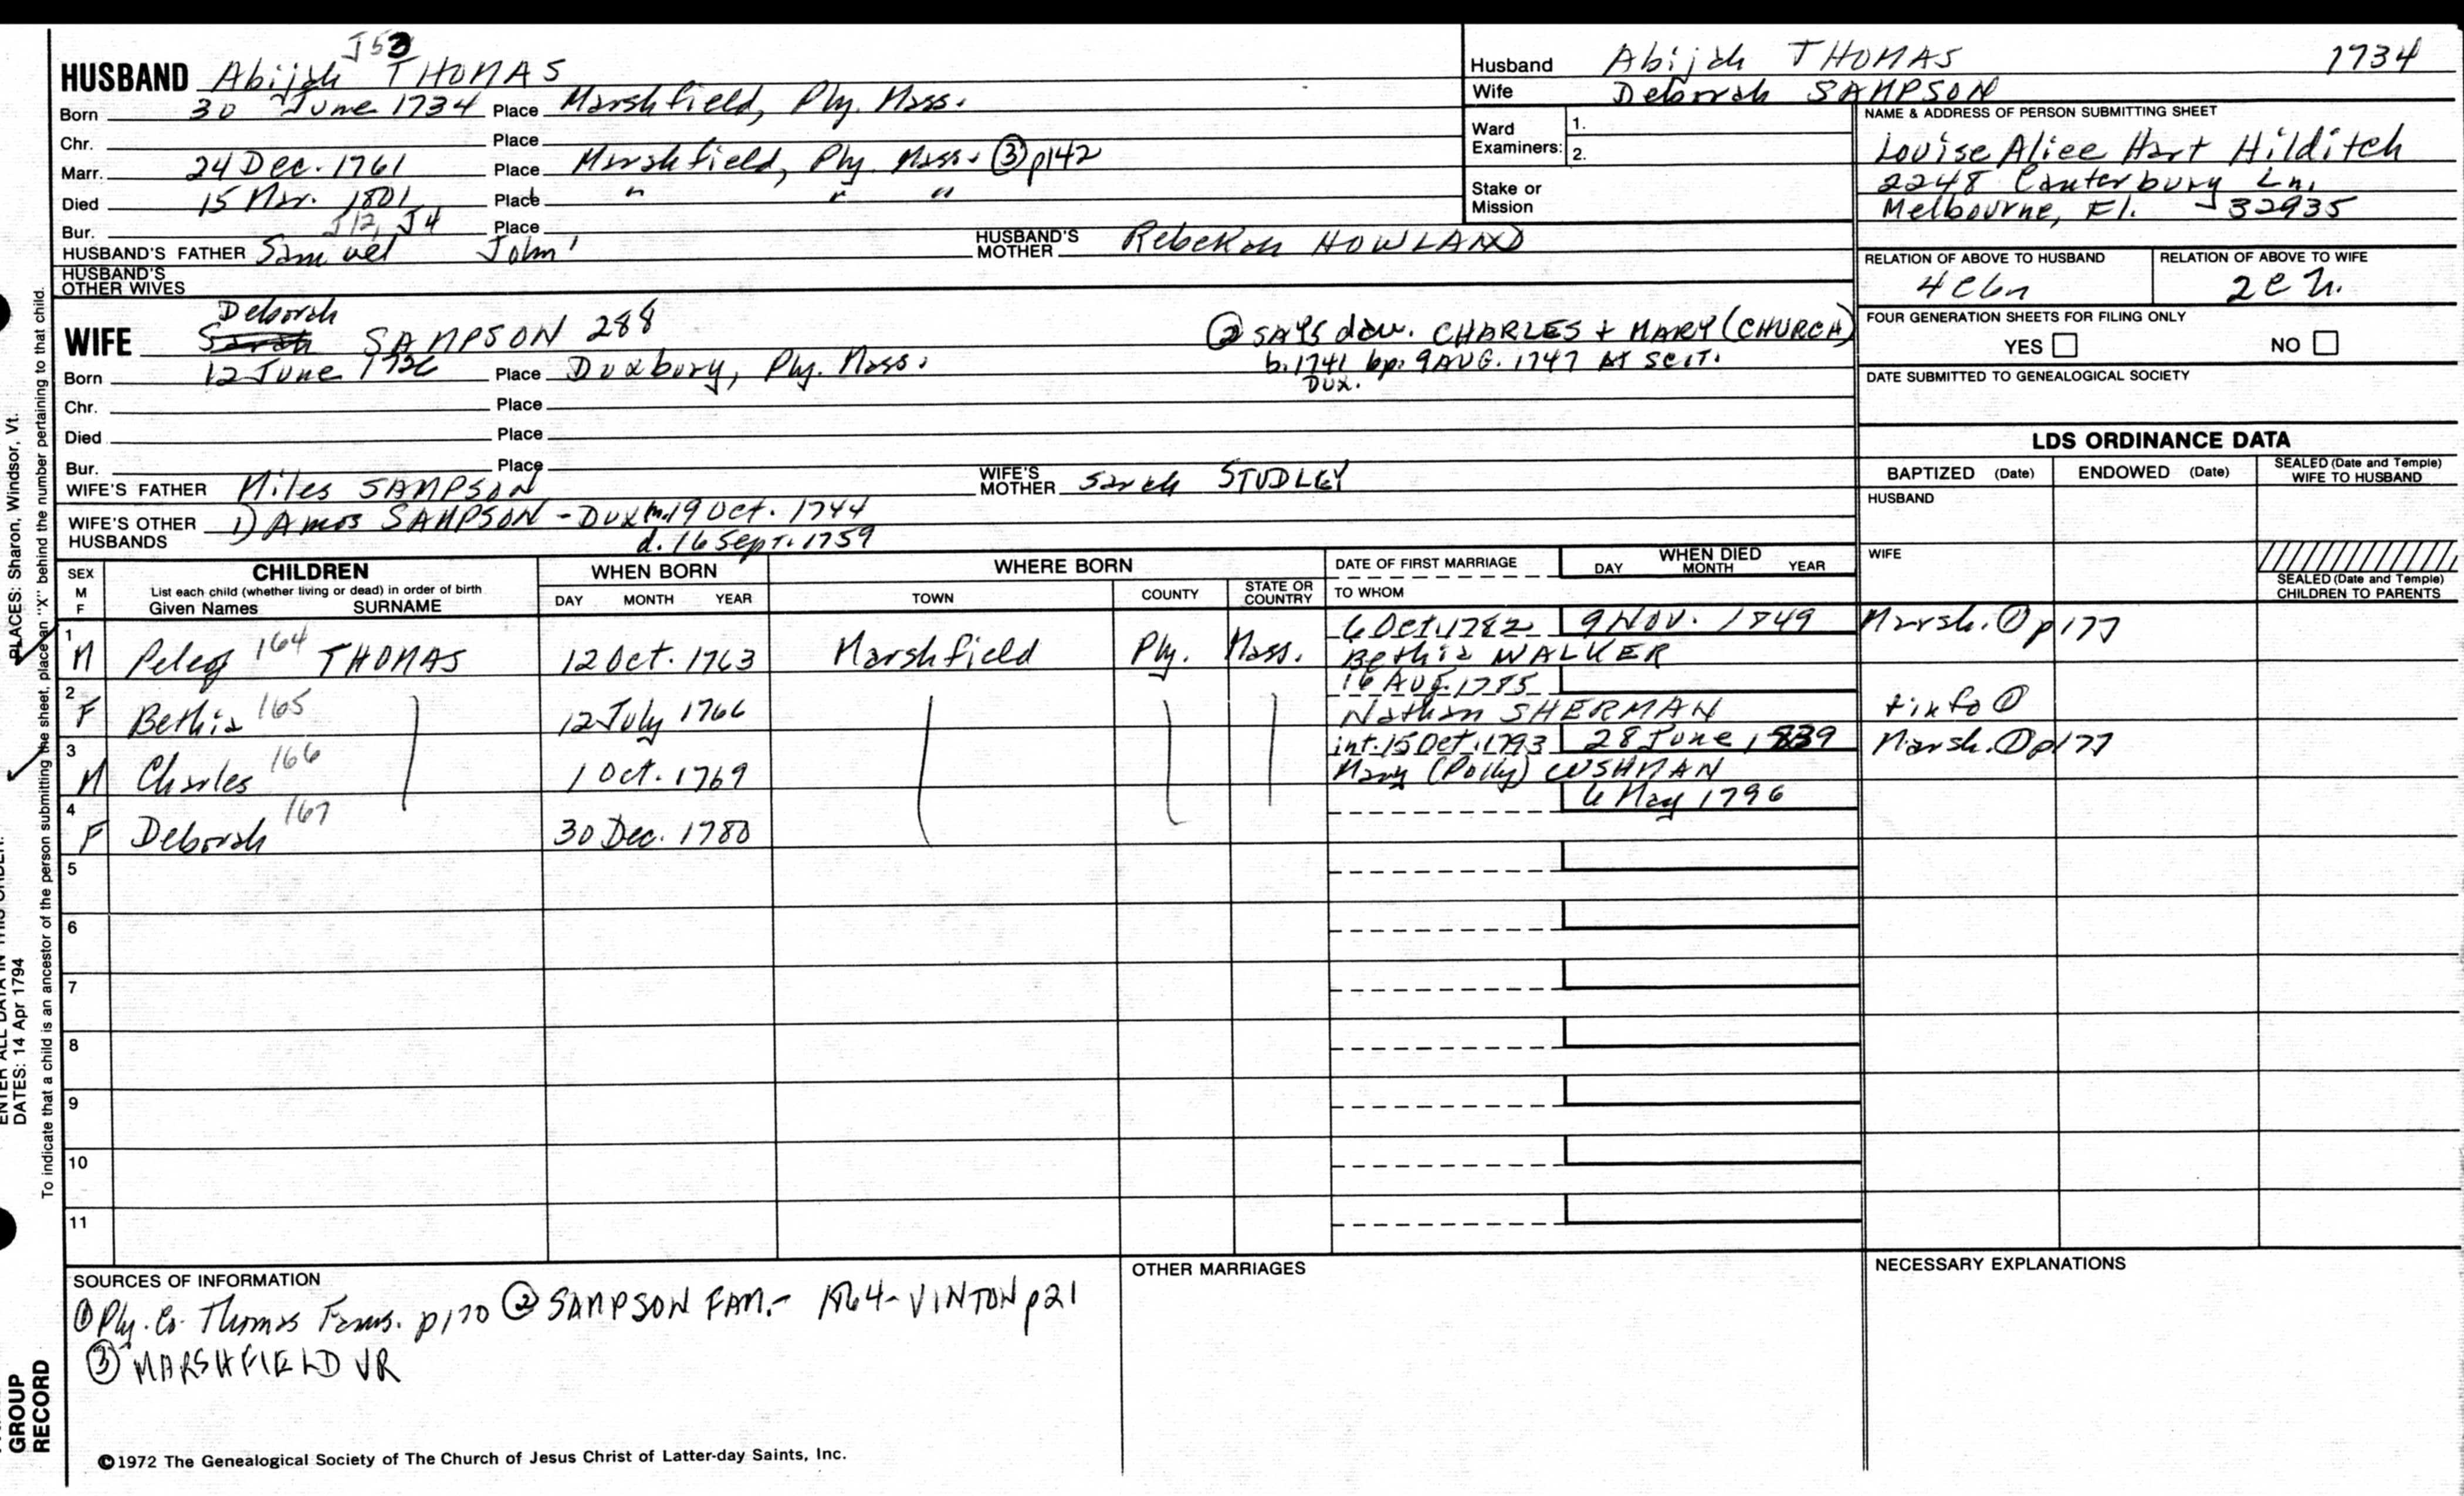 J53
HUSBAND Abijah THOMAS
Born 30 June 1734 Place Marshfield, Ply. Mass.
Chr. Place
Marr. 24 Dec. 1761 Place Marshfield, Ply. Mass. ③ p142
Died 15 Mar. 1801 Place " " "
Bur. Place
J12, J4
HUSBAND'S FATHER Samuel John' HUSBAND'S MOTHER Rebekah HOWLAND
HUSBAND'S OTHER WIVES
Husband Abijah THOMAS 1734
Wife Deborah SAMPSON
Ward Examiners: 1.
2.
Stake or Mission
NAME & ADDRESS OF PERSON SUBMITTING SHEET
Louise Alice Hart Hilditch
2248 Canterbury Ln.
Melbourne, Fl. 32935
RELATION OF ABOVE TO HUSBAND RELATION OF ABOVE TO WIFE
FOUR GENERATION SHEETS FOR FILING ONLY
YES NO
DATE SUBMITTED TO GENEALOGICAL SOCIETY
Deborah
WIFE Sarah SAMPSON 288
② SAYS dau. CHARLES + MARY (CHURCH)
b. 1741 bp. 9 AUG. 1747 AT SCIT.
DUX.
Born 12 June 1726 Place Duxbury, Ply. Mass.
Chr. Place
Died Place
Bur. Place
WIFE'S FATHER Miles SAMPSON WIFE'S MOTHER Sarah STUDLEY
WIFE'S OTHER HUSBANDS 1) Amos SAMPSON - DUX m. 19 Oct. 1744
d. 16 Sept. 1759
LDS ORDINANCE DATA
BAPTIZED (Date) ENDOWED (Date) SEALED (Date and Temple) WIFE TO HUSBAND
HUSBAND
WIFE
SEALED (Date and Temple) CHILDREN TO PARENTS
SEX M F
CHILDREN
List each child (whether living or dead) in order of birth
Given Names SURNAME
WHEN BORN
DAY MONTH YEAR
WHERE BORN
TOWN COUNTY STATE OR COUNTRY
DATE OF FIRST MARRIAGE
TO WHOM
WHEN DIED
DAY MONTH YEAR
1 M Peleg 164 THOMAS 12 Oct. 1763 Marshfield Ply. Mass. 6 Oct. 1782 9 NOV. 1849 Marsh. ① p177
Bethia WALKER
2 F Bethia 165 12 July 1766 16 AUG. 1785
Nathan SHERMAN
+info ①
3 M Charles 166 1 Oct. 1769 int. 15 Oct. 1793 28 June 1839 Marsh. ① p177
Mary (Polly) CUSHMAN
4 F Deborah 167 30 Dec. 1780 6 May 1796
5
6
7
8
9
10
11
SOURCES OF INFORMATION
① Ply. Co. Thomas Fams. p170 ② SAMPSON FAM. - 1864 - VINTON p21
③ MARSHFIELD VR
OTHER MARRIAGES
NECESSARY EXPLANATIONS
©1972 The Genealogical Society of The Church of Jesus Christ of Latter-day Saints, Inc.
PLACES: Sharon, Windsor, Vt.
DATES: 14 Apr 1794
To indicate that a child is an ancestor of the person submitting the sheet, place an "X" behind the number pertaining to that child.
GROUP
RECORD